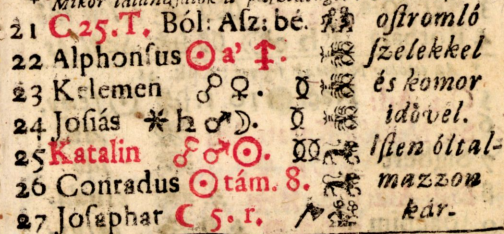 21 C. 25. T. Ból: Asz: bé. ostromló
22 Alphonſus ☉ a' ♐. ſzelekkel
23 Kelemen ☍ ♀. és komor
24 Joſiás ✶ ♄ ♂ ☽. idővel.
25 Katalin ☍ ♂ ☉. Iſten óltal-
26 Conradus ☉ tám. 8. mazzon
27 Joſaphat ☾ 5. r. kár-